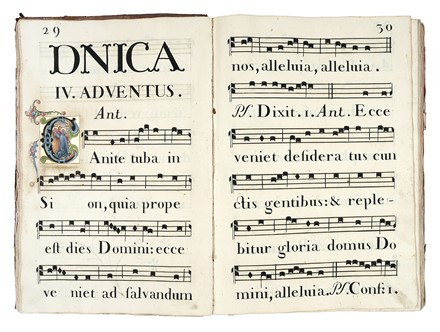 29
DNICA
IV. ADVENTUS.
Ant.
CAnite tuba in
Si on, quia prope
eſt dies Domini: ecce
ve niet ad ſalvandum
30
nos, alleluia, alleluia.
Pſ. Dixit. 1. Ant. Ecce
veniet deſidera tus cun
ctis gentibus: & reple-
bitur gloria domus Do
mini, alleluia. Pſ. Confi: 1.